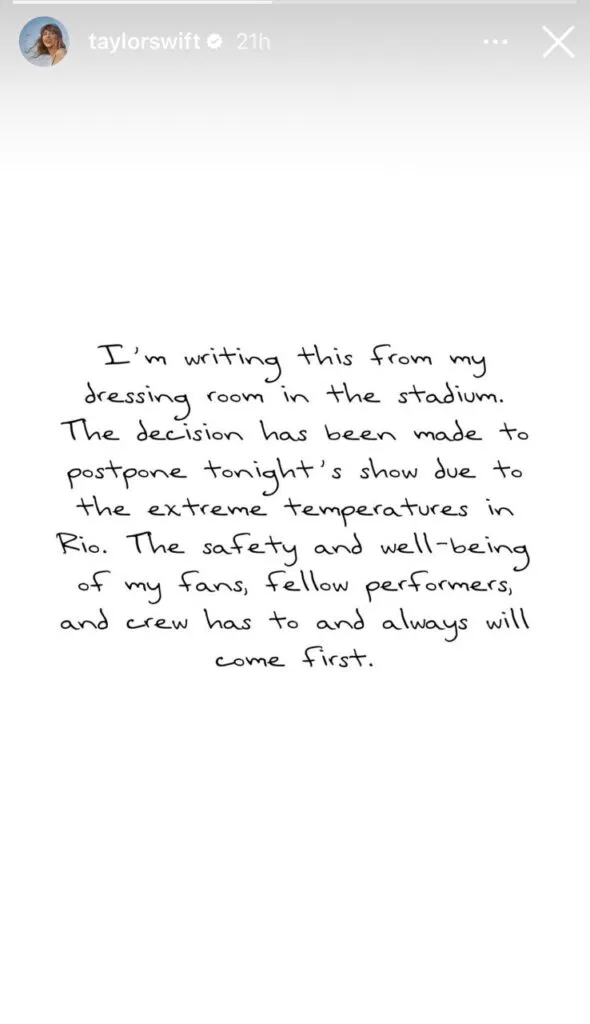 taylorswift 21h
I'm writing this from my
dressing room in the stadium.
The decision has been made to
postpone tonight's show due to
the extreme temperatures in
Rio. The safety and well-being
of my fans, fellow performers,
and crew has to and always will
come first.